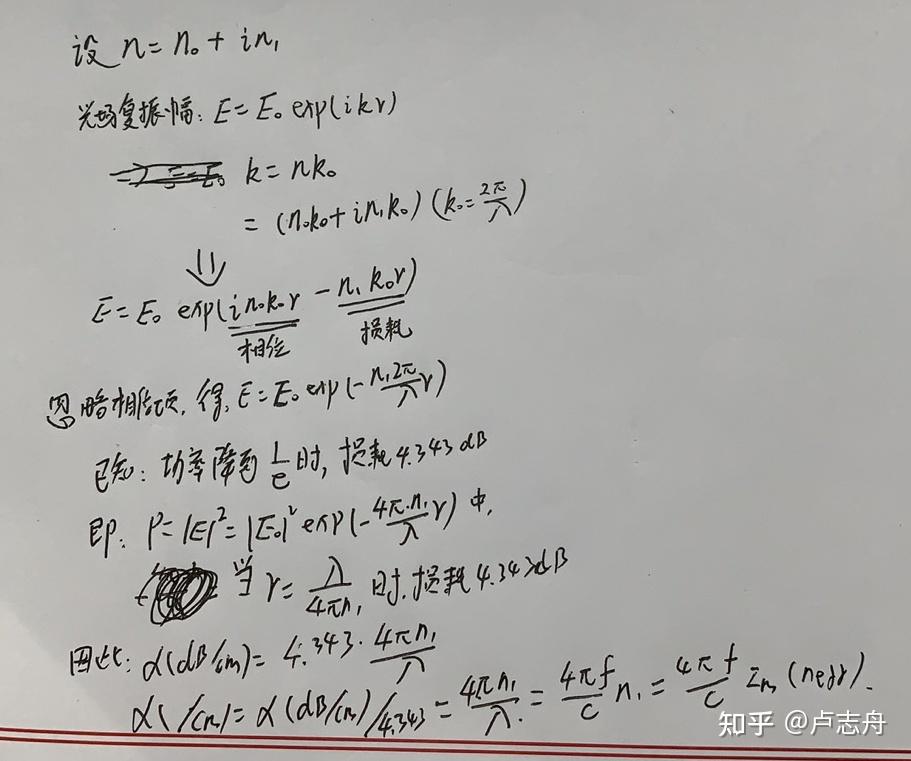 设 n = n₀ + in₁
光场复振幅: E = E₀ exp(ikr)
k = nk₀
= (n₀k₀ + in₁k₀) (k₀ = 2π/λ)
⇓
E = E₀ exp(in₀k₀r - n₁k₀r)
相位 损耗
忽略相位项, 得, E = E₀ exp(-n₁2π/λ r)
已知: 功率降到 1/e 时, 损耗 4.343 dB
即: P = |E|² = |E₀|² exp(-4π·n₁/λ r) 中,
当 r = λ/4πn₁ 时, 损耗 4.343dB
因此: α(dB/cm) = 4.343 · 4πn₁/λ
α(/cm) = α(dB/cm)/4.343 = 4πn₁/λ = 4πf/c n₁ = 4πf/c Im(neff).
知乎 @卢志舟